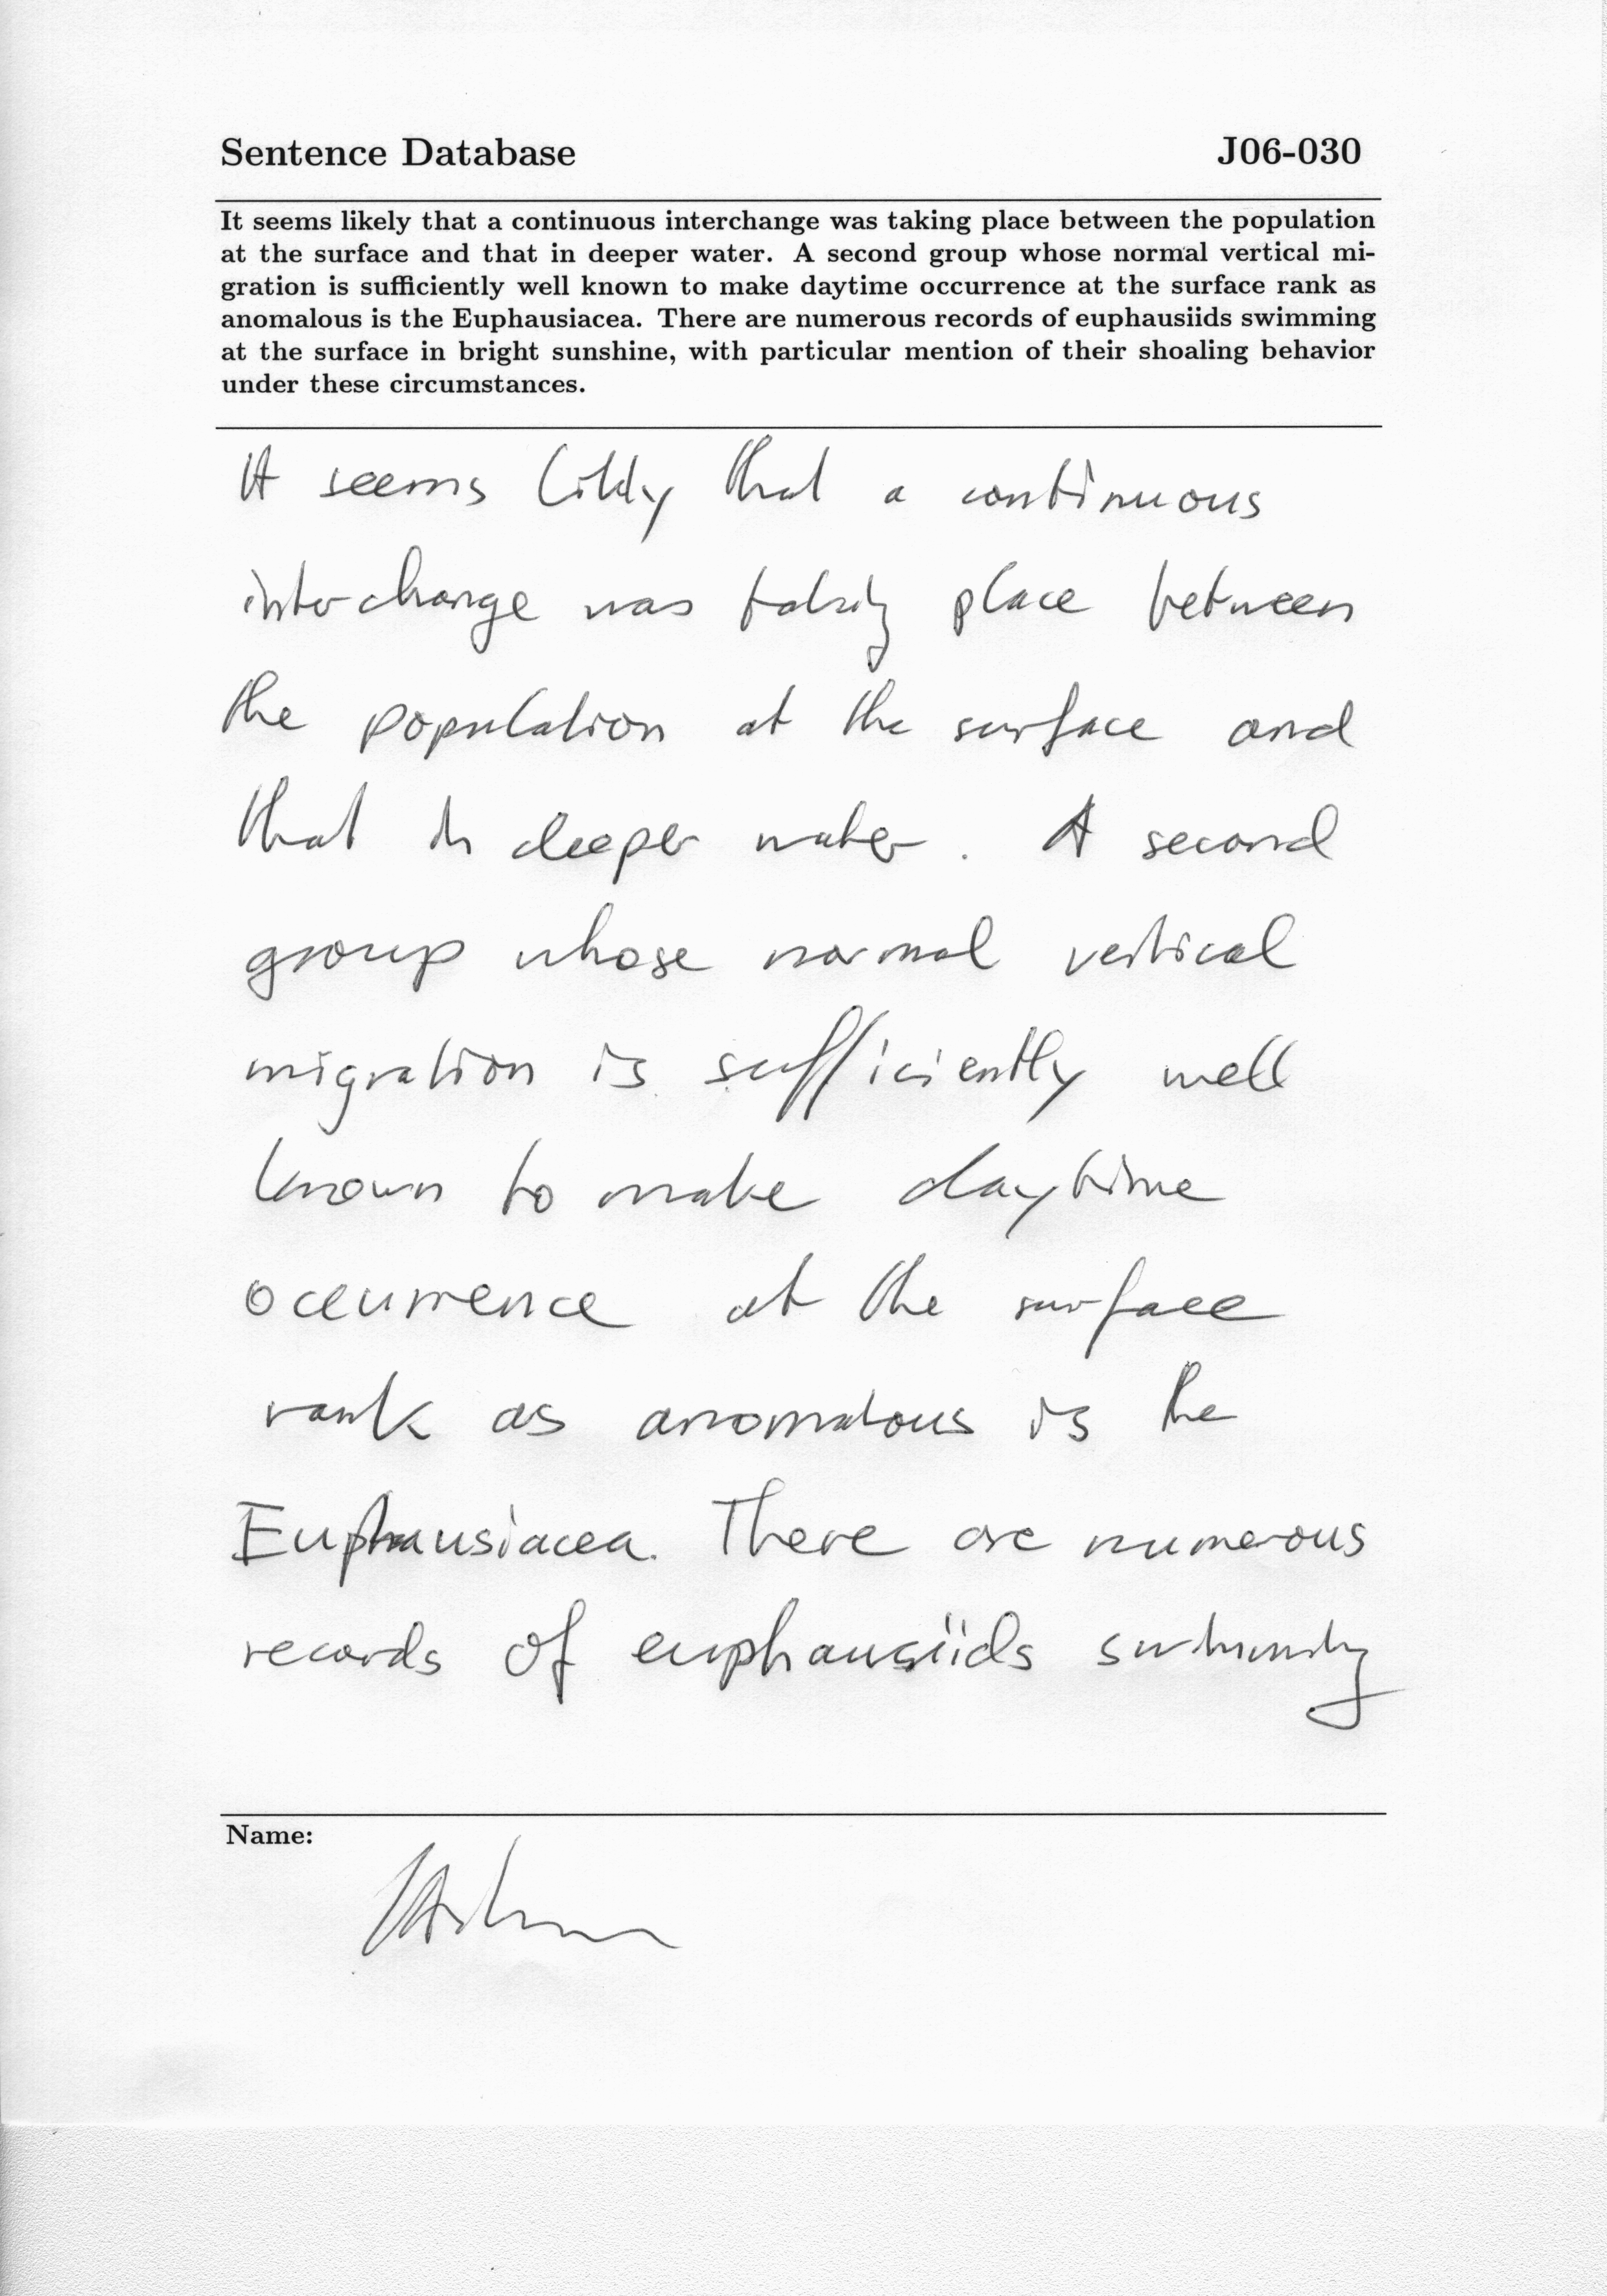 Sentence Database J06-030
It seems likely that a continuous interchange was taking place between the population
at the surface and that in deeper water. A second group whose normal vertical mi-
gration is sufficiently well known to make daytime occurrence at the surface rank as
anomalous is the Euphausiacea. There are numerous records of euphausiids swimming
at the surface in bright sunshine, with particular mention of their shoaling behavior
under these circumstances.
It seems likely that a continuous
interchange was taking place between
the population at the surface and
that in deeper water. A second
group whose normal vertical
migration is sufficiently well
known to make daytime
occurrence at the surface
rank as anomalous is the
Euphausiacea. There are numerous
records of euphausiids swimming
Name: